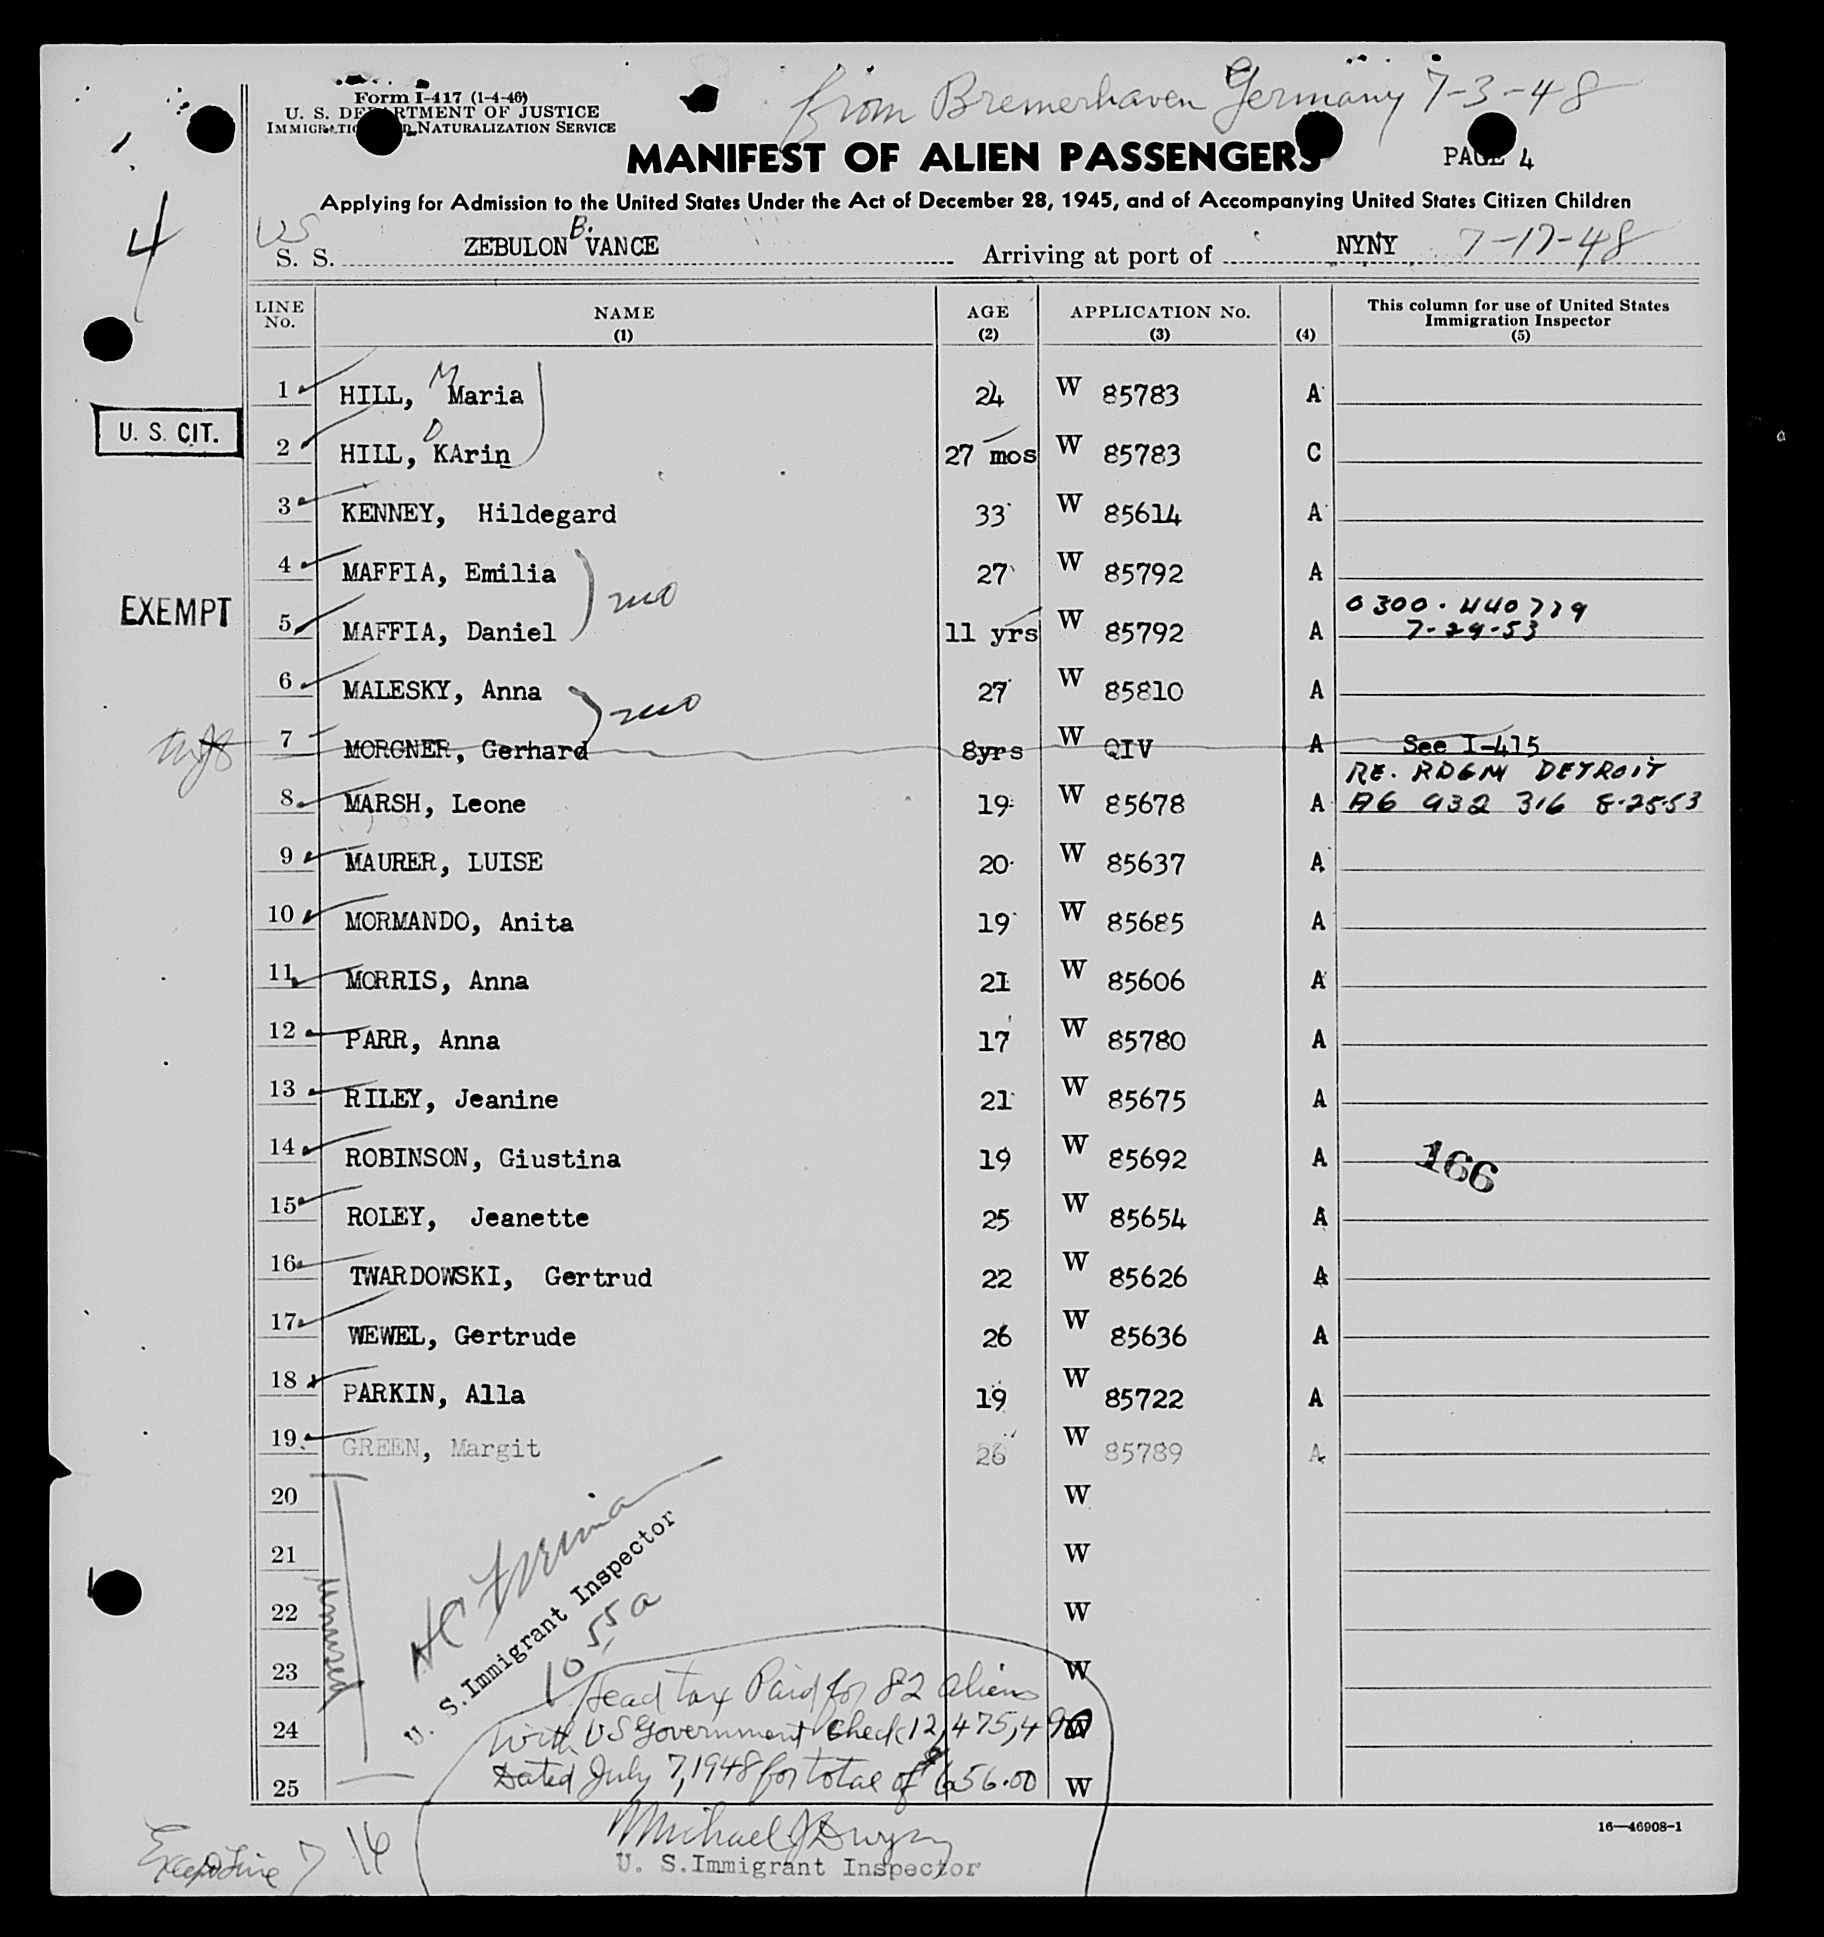 from Bremerhaven Germany 7-3-48
Form I-417 (1-4-46)
U. S. DEPARTMENT OF JUSTICE
IMMIGRATION AND NATURALIZATION SERVICE
MANIFEST OF ALIEN PASSENGERS PAGE 4
Applying for Admission to the United States Under the Act of December 28, 1945, and of Accompanying United States Citizen Children
4
US
S. S. ZEBULON B. VANCE Arriving at port of NYNY 7-17-48
LINE No. NAME (1) AGE (2) APPLICATION No. (3) (4) This column for use of United States Immigration Inspector (5)
1 HILL, M Maria 24 W 85783 A
U. S. CIT.
2 HILL, D KArin 27 mos W 85783 C
3 KENNEY, Hildegard 33 W 85614 A
4 MAFFIA, Emilia 27 W 85792 A
EXEMPT
0300-440779
5 MAFFIA, Daniel 11 yrs W 85792 A 7-29-53
6 MALESKY, Anna 27 W 85810 A
7 MORGNER, Gerhard 8yrs W QIV A See I-415
RE. RDGM DETROIT
8 MARSH, Leone 19 W 85678 A A6 932 316 8-25-53
9 MAURER, LUISE 20 W 85637 A
10 MORMANDO, Anita 19 W 85685 A
11 MORRIS, Anna 21 W 85606 A
12 PARR, Anna 17 W 85780 A
13 RILEY, Jeanine 21 W 85675 A
14 ROBINSON, Giustina 19 W 85692 A
166
15 ROLEY, Jeanette 25 W 85654 A
16 TWARDOWSKI, Gertrud 22 W 85626 A
17 WEWEL, Gertrude 26 W 85636 A
18 PARKIN, Alla 19 W 85722 A
19 GREEN, Margit 26 W 85789 A
20 W
21 W
22 W
23 W
24 W
25 W
unused
U. S. Immigrant Inspector
10 55 a
Head tax Paid for 82 aliens
with US Government Check 12,475,490
Dated July 7, 1948 for total of $656.00
Michael J Dwyer
U. S. Immigrant Inspector
16—46908-1
Except Line 7